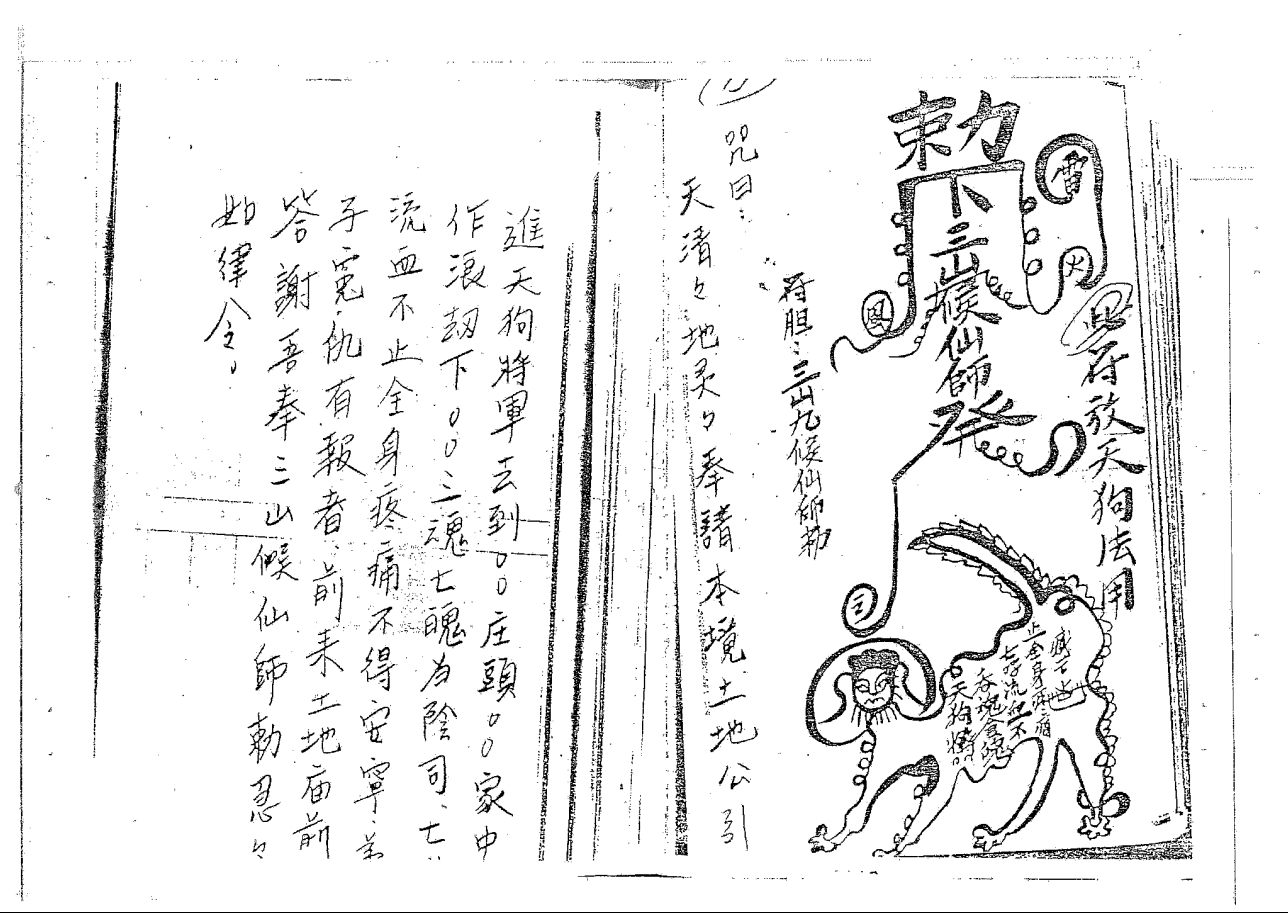 此符放天狗法用
雷
火
勅下三山候仙師
鳳
三
止全身疼痛
七孔流血不
吞魂食魄
天狗將
符胆：三山九候仙師勅
咒曰：
天清々地灵々奉請本境土地公引
進天狗將軍去到〇〇庄頭〇〇家中
作浪刼下〇〇三魂七魄为陰司、七
流血不止全身疼痛不得安寧、弟
子冤仇有報者、前来土地庙前
答謝吾奉三山候仙師勅急々
如律令。